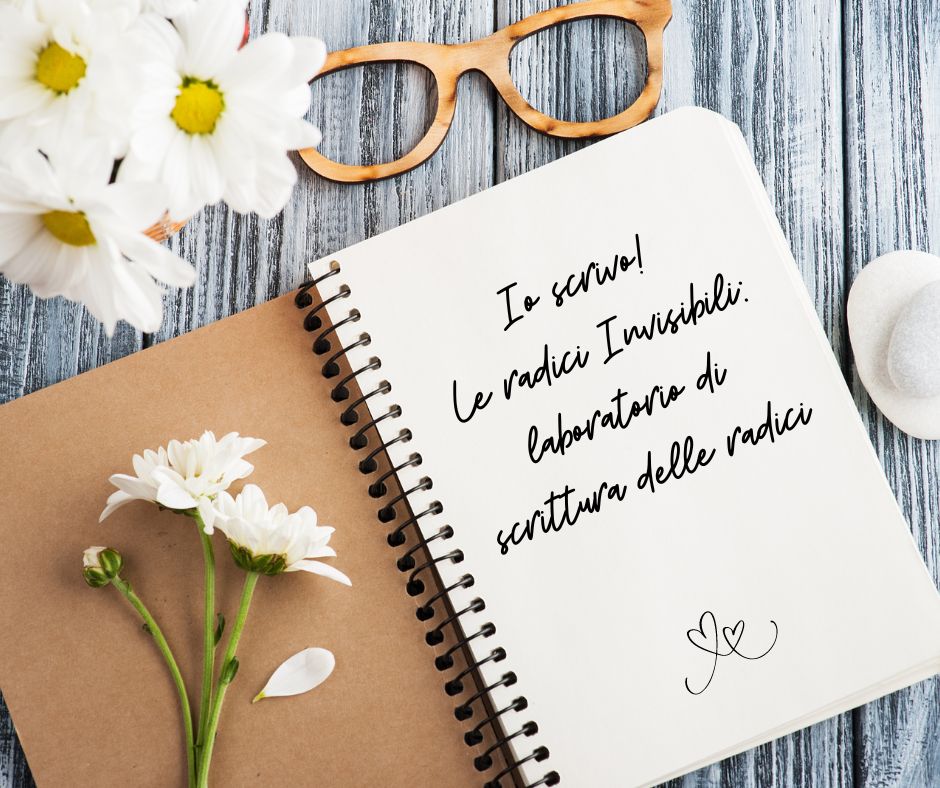 Io scrivo!
Le radici Invisibili:
laboratorio di
scrittura delle radici